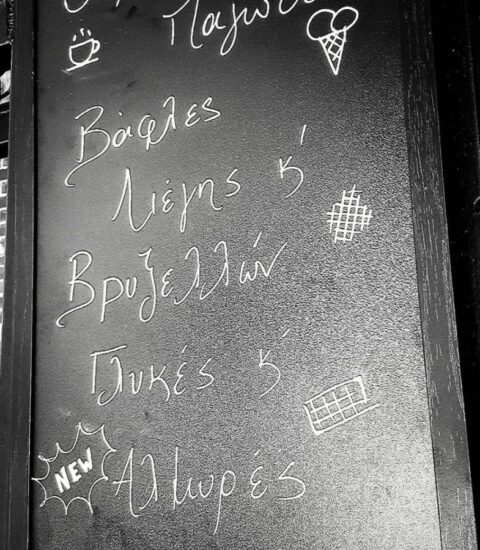 Παγωτο
Βάφλες
Λιέγης κ'
Βρυξελλών
Γλυκές κ'
NEW Αλμυρές